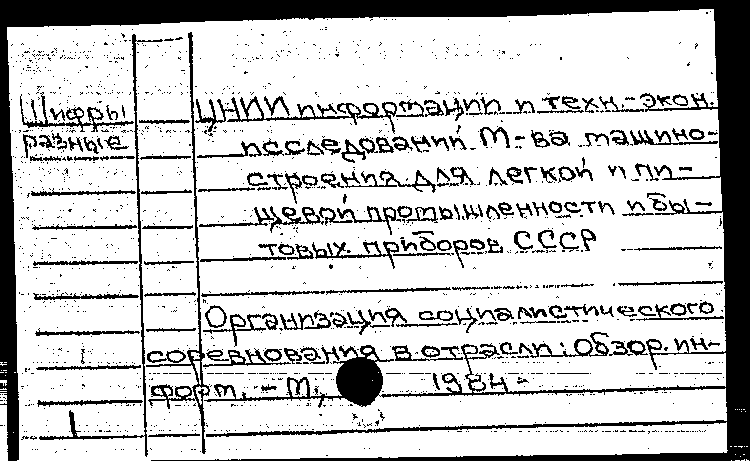 Шифры
разные
ЦНИИ информации и техн.-экон.
исследований М-ва машино-
строения для легкой и пи-
щевой промышленности и бы-
товых приборов СССР
Организация социалистического
соревнования в отрасли: Обзор. ин-
форм. - М., 1984-